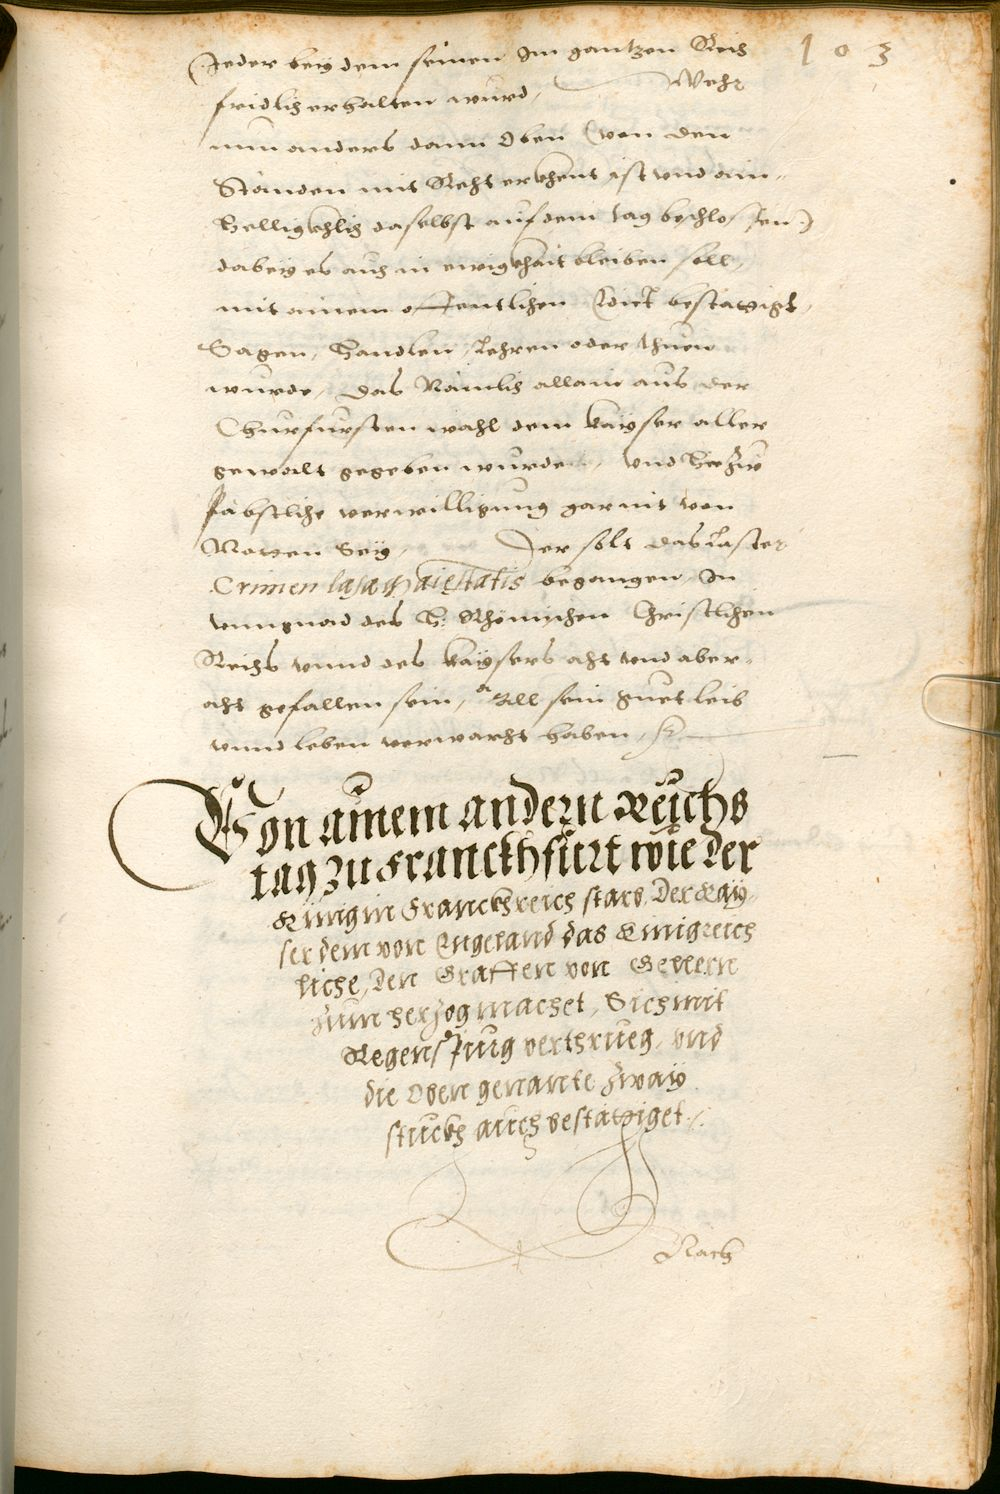 103
Jeder bey dem seinen Im gantzen Reich
fridlich erhalten wurd, Wehr
nun anders dann Oben (von den
Ständen mit Recht erkhent ist vnd ain=
helligkhlich daselbst auf dem tag beschlossen)
dabey es auch in ewigkhait bleiben soll,
mit ainem offentlichen Edict bestättigt,
Sagen, handlen, lehren oder thuen
wurde, das Nämlich allain aus der
Churfursten wahl dem kayser aller
gewalt gegeben wurde, vnd hierzue
Päbstliche verwilligung gar nit von
Nötten sey, Der solt das laster
Crimen læsæ Maiestatis begangen, In
vnngnad des H: Römischen Christlichen
Reichs vnnd des kaysers acht vnd aber=
acht gefallen sein, all sein guet leib
vnnd leben verwürckt haben, etc
Von ainem andern Reichs
tag zu Franckhfurt wie der
Künig in Franckhreich starb, Der Kay=
ser dem von Engeland das Künigreich
liche, Den Graffen von Gellern
zum herzog machet, Sich mit
Regenspurg verthrueg, vnd
die Oben genante zway
stuckh auch bestättiget.
Nach